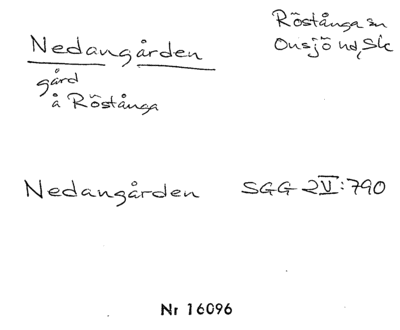 Nedangården
gård
å Röstånga
Röstånga sn
Onsjö hd, Sk
Nedangården SGG 2V:790
Nr 16096